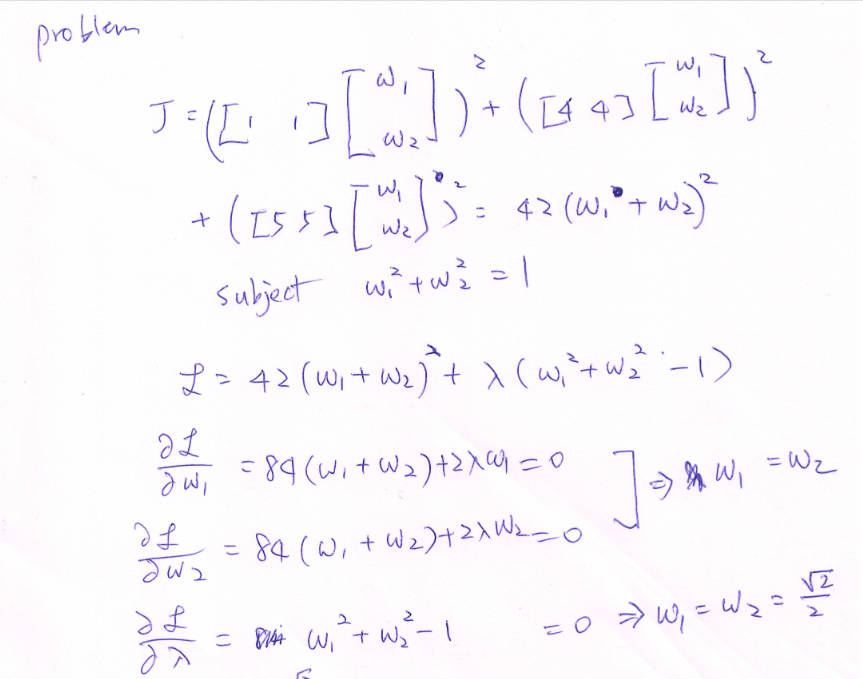 problem
J = ([1 1] [w₁ w₂])² + ([4 4] [w₁ w₂])²
+ ([5 5] [w₁ w₂])² = 42 (w₁ + w₂)²
subject w₁² + w₂² = 1
ℒ = 42 (w₁ + w₂)² + λ (w₁² + w₂² - 1)
∂ℒ/∂w₁ = 84 (w₁ + w₂) + 2λw₁ = 0
∂ℒ/∂w₂ = 84 (w₁ + w₂) + 2λw₂ = 0 ] ⇒ w₁ = w₂
∂ℒ/∂λ = w₁² + w₂² - 1 = 0 ⇒ w₁ = w₂ = √2/2